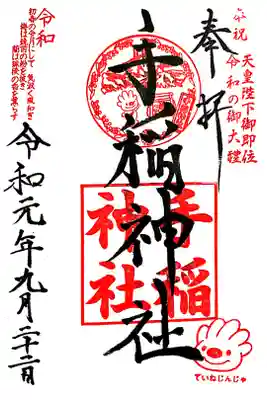 奉拝
奉祝
天皇陛下御即位
令和の御大禮
手稲神社
手稲
神社
ていねじんじゃ
令和
初春の令月にして 気淑く風和ぎ
梅は鏡前の粉を披き
蘭は珮後の香を薫らす
令和元年九月二十二日